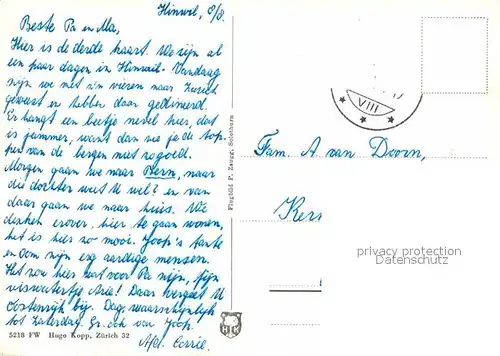 Hinwil, 8/8.
Beste Pa en Ma,
Hier is de derde kaart. We zijn al
een paar dagen in Hinwil. Vandaag
zijn we met z'n vieren naar Zurich
geweest en hebben daar gedineerd.
Er hangt een beetje nevel hier, dat
is jammer, want dan zie je de top-
pen van de bergen niet zo goed.
Morgen gaan we naar Bern, naar
die dochter weet U wel? en van
daar gaan we naar huis. We
denken erover, hier te gaan wonen,
het is hier zo mooi. Joop's tante
en Oom zijn erg aardige mensen.
Het zou hier best voor Pa zijn, fijn
viswatertje Aria! Daar vergeet U
Oostenrijk bij. Dag, waarschijnlijk
tot Zaterdag. Gr. ook van Joop.
Corrie.
5218 FW Hugo Kopp, Zürich 32
Flugbild P. Zaugg, Solothurn
HK
VIII
Fam. A van Doorn,
Kers
privacy protection
watermark